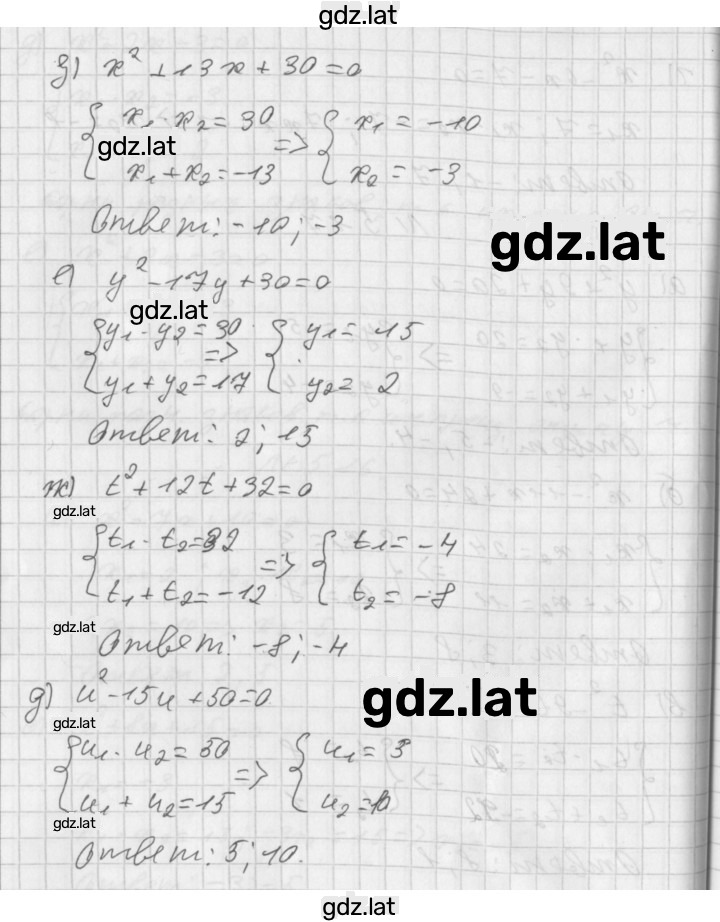 gdz.lat
д) x² + 13x + 30 = 0
{ x₁ · x₂ = 30 => { x₁ = -10
gdz.lat
x₁ + x₂ = -13 x₂ = -3
Ответ: -10; -3
gdz.lat
е) y² - 17y + 30 = 0
gdz.lat
{ y₁ · y₂ = 30 => { y₁ = 15
y₁ + y₂ = 17 y₂ = 2
Ответ: 2; 15
ж) t² + 12t + 32 = 0
gdz.lat
{ t₁ · t₂ = 32 => { t₁ = -4
t₁ + t₂ = -12 t₂ = -8
gdz.lat
Ответ: -8; -4
д) u² - 15u + 50 = 0
gdz.lat
gdz.lat
{ u₁ · u₂ = 50 => { u₁ = 5
u₁ + u₂ = 15 u₂ = 10
gdz.lat
Ответ: 5; 10.
gdz.lat